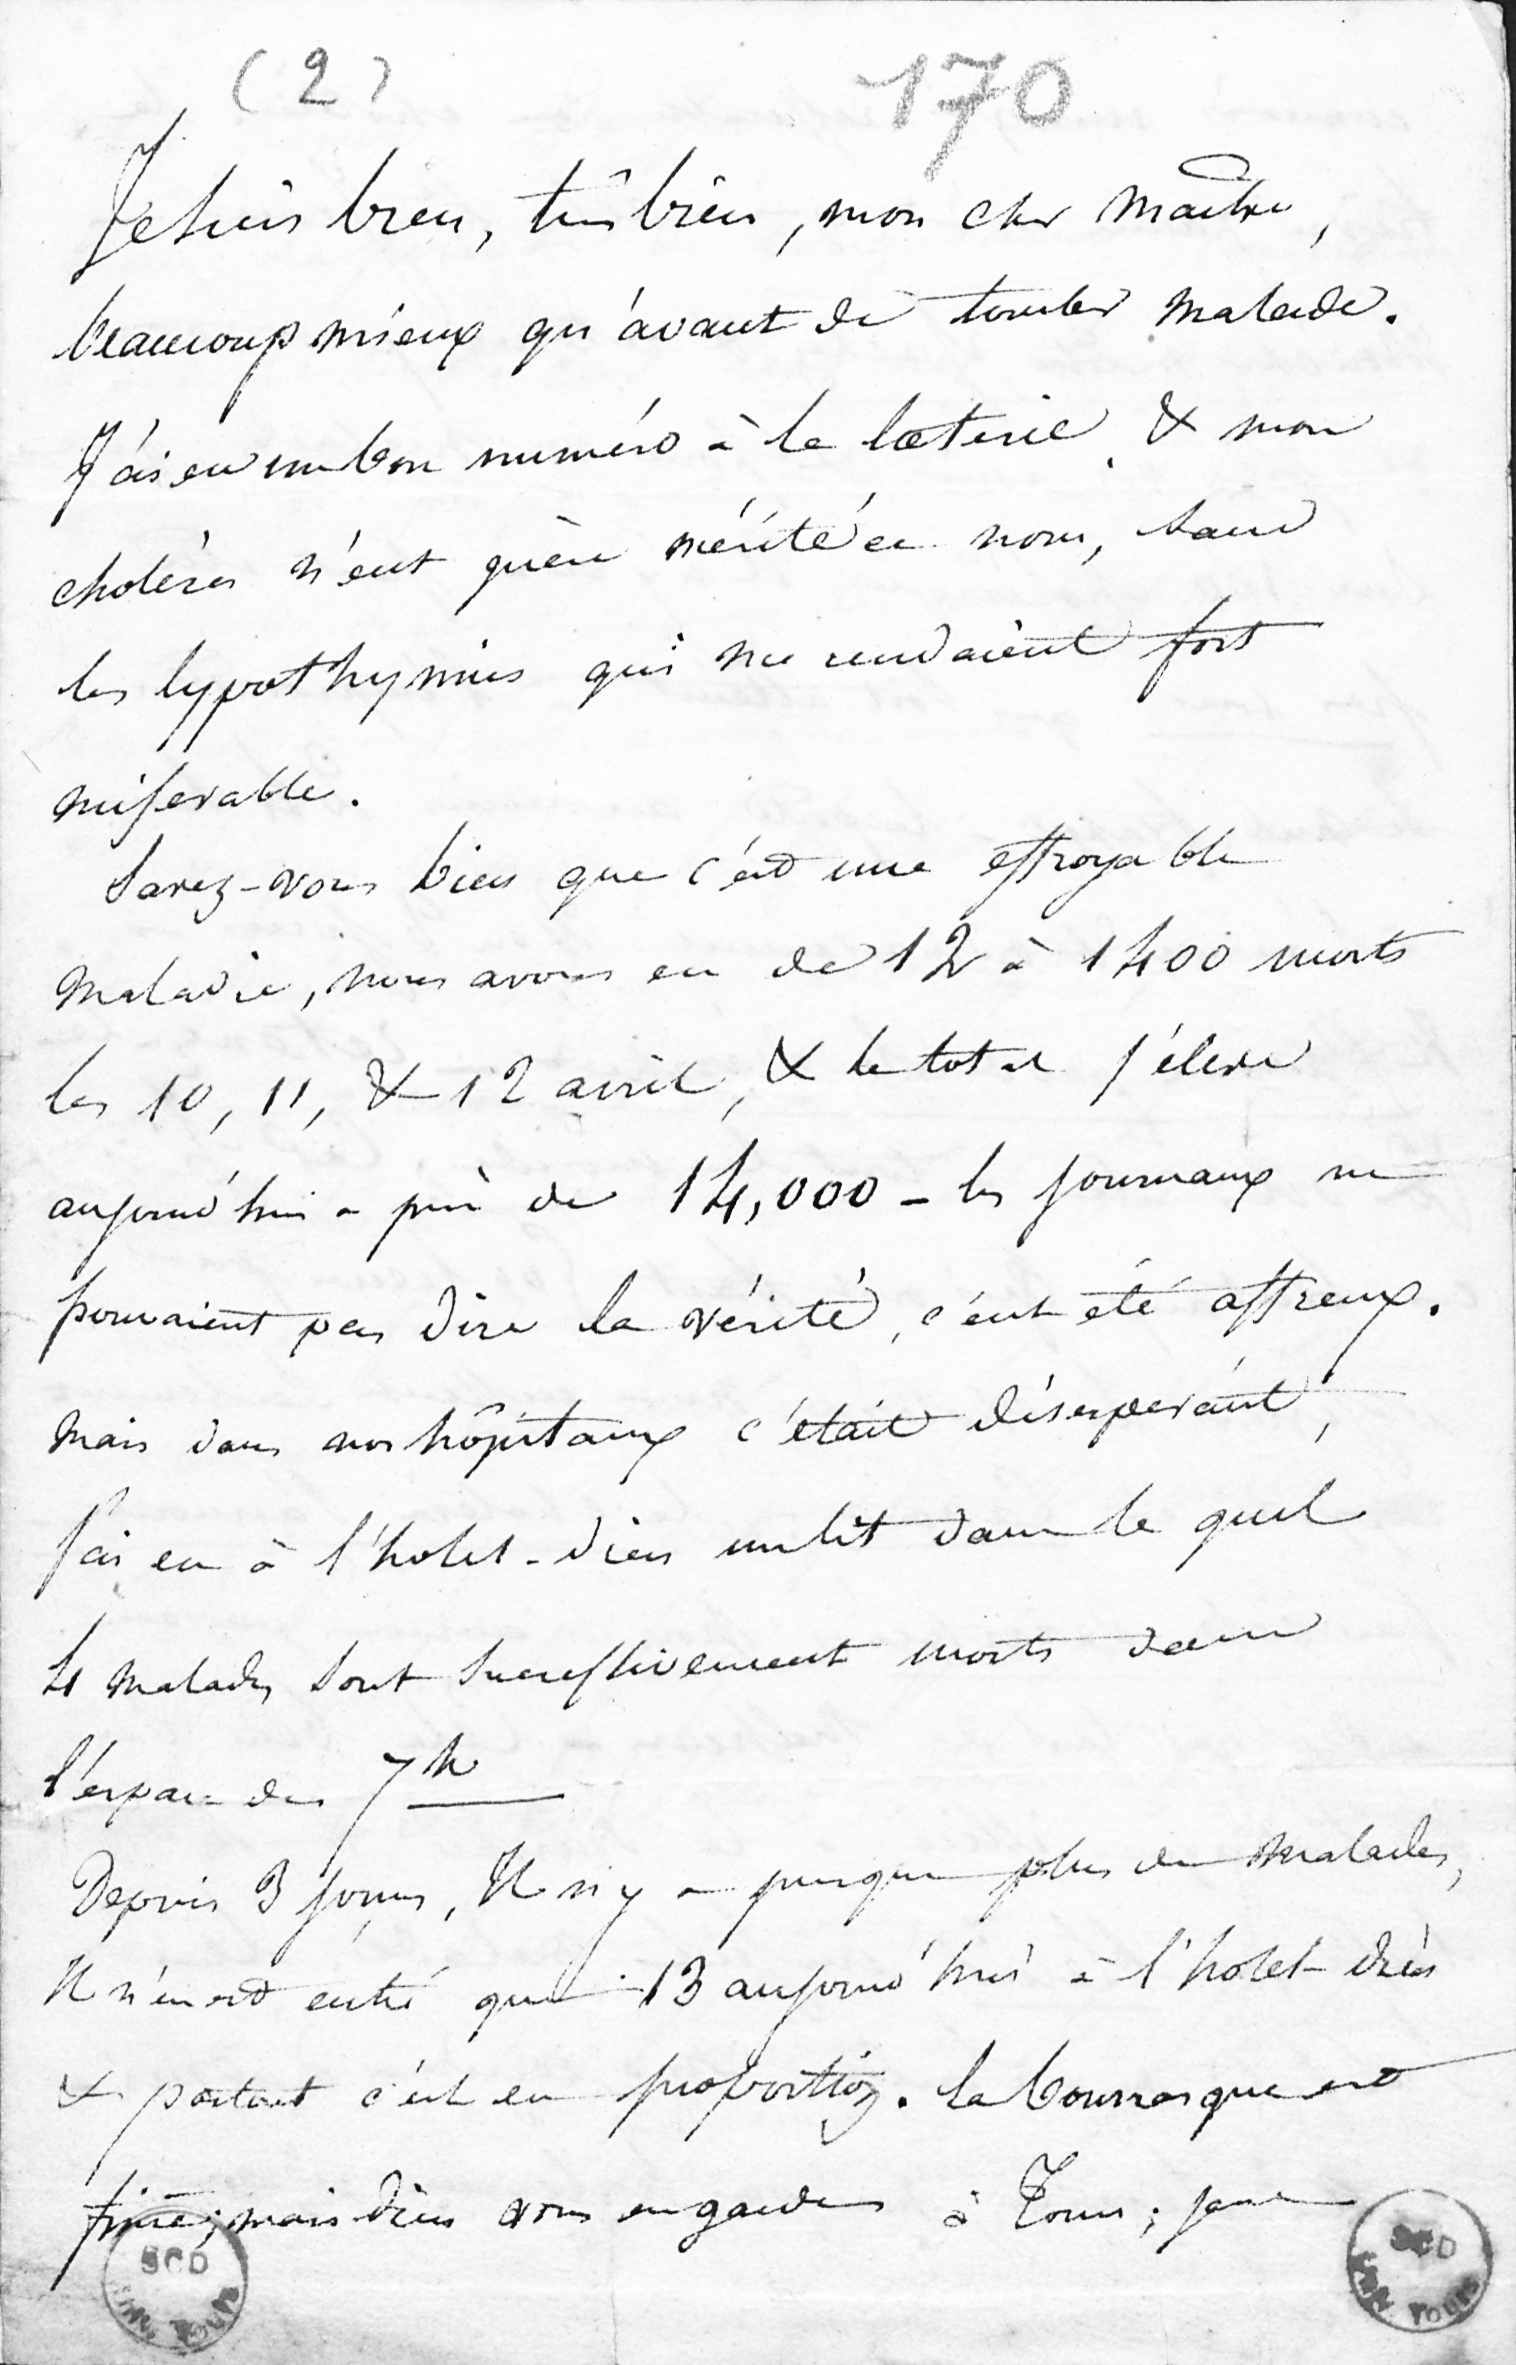 (2) 170
Je suis bien, très bien, mon cher maître,
beaucoup mieux qu'avant de tomber malade.
J'ai eu un bon numéro à la loterie, & mon
choléra n'eut guère mérité ce nom, sauf
les lypothymies qui me rendaient fort
miserable.
Savez-vous bien que c'est une effroyable
maladie, nous avons eu de 12 à 1400 morts
les 10, 11, & 12 avril, & le total s'éleve
aujourd'hui a près de 14,000 - les journaux ne
pouvaient pas dire la vérité, c'eut été affreux.
mais dans nos hôpitaux c'était désesperant,
j'ai eu à l'hotel-dieu un lit dans le quel
4 malades sont successivement morts dans
l'espace de 7h
Depuis 3 jours, Il n'y a presque plus de malades,
Il n'en est entré que 13 aujourd'hui à l'hotel-dieu
& partout c'est en proportion. la bourrasque est
finie; mais dieu vous en garde à Tours;
SCD
UNIV TOURS
SCD
UNIV TOURS